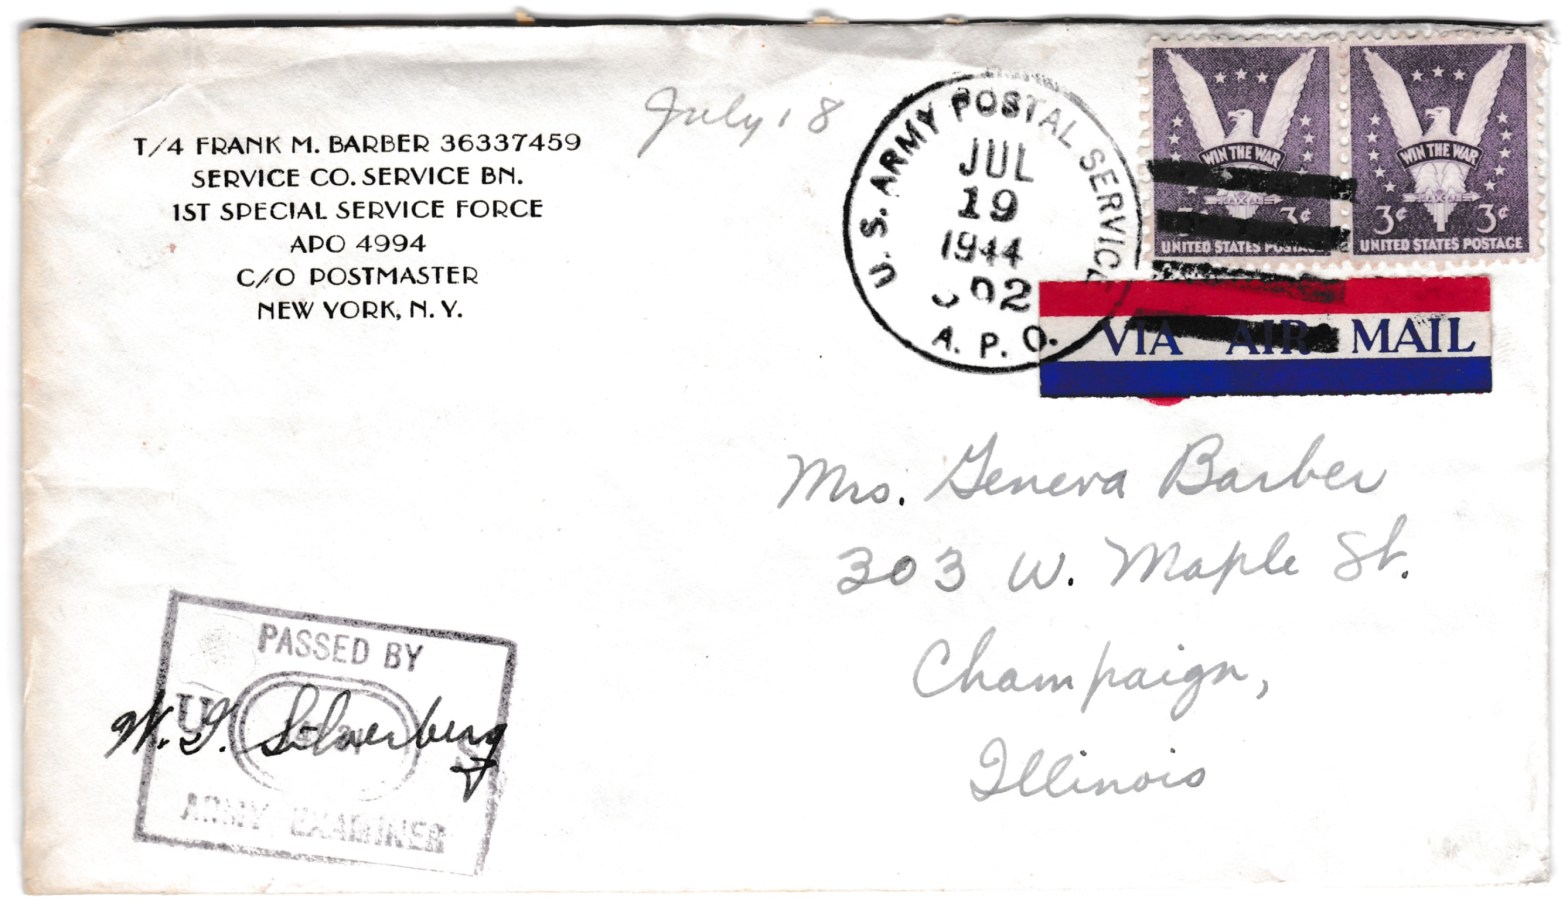 T/4 FRANK M. BARBER 36337459
SERVICE CO. SERVICE BN.
1ST SPECIAL SERVICE FORCE
APO 4994
C/O POSTMASTER
NEW YORK, N. Y.
July 18
U. S. ARMY POSTAL SERVICE
JUL
19
1944
A. P. O.
WIN THE WAR
3¢
UNITED STATES POSTAGE
WIN THE WAR
3¢ 3¢
UNITED STATES POSTAGE
VIA AIR MAIL
Mrs. Geneva Barber
303 W. Maple St.
Champaign,
Illinois
PASSED BY
U S
ARMY EXAMINER